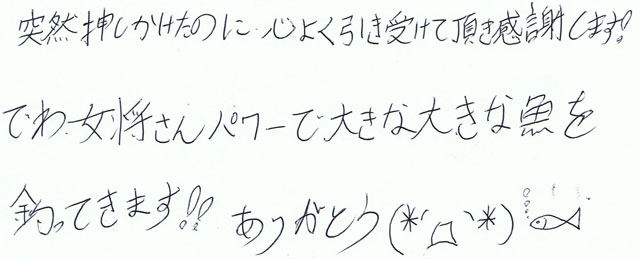 突然押しかけたのに、心よく引き受けて頂き感謝します!
でわ女将さんパワーで大きな大きな魚を
釣ってきます!! ありがとう(*´Д`*)